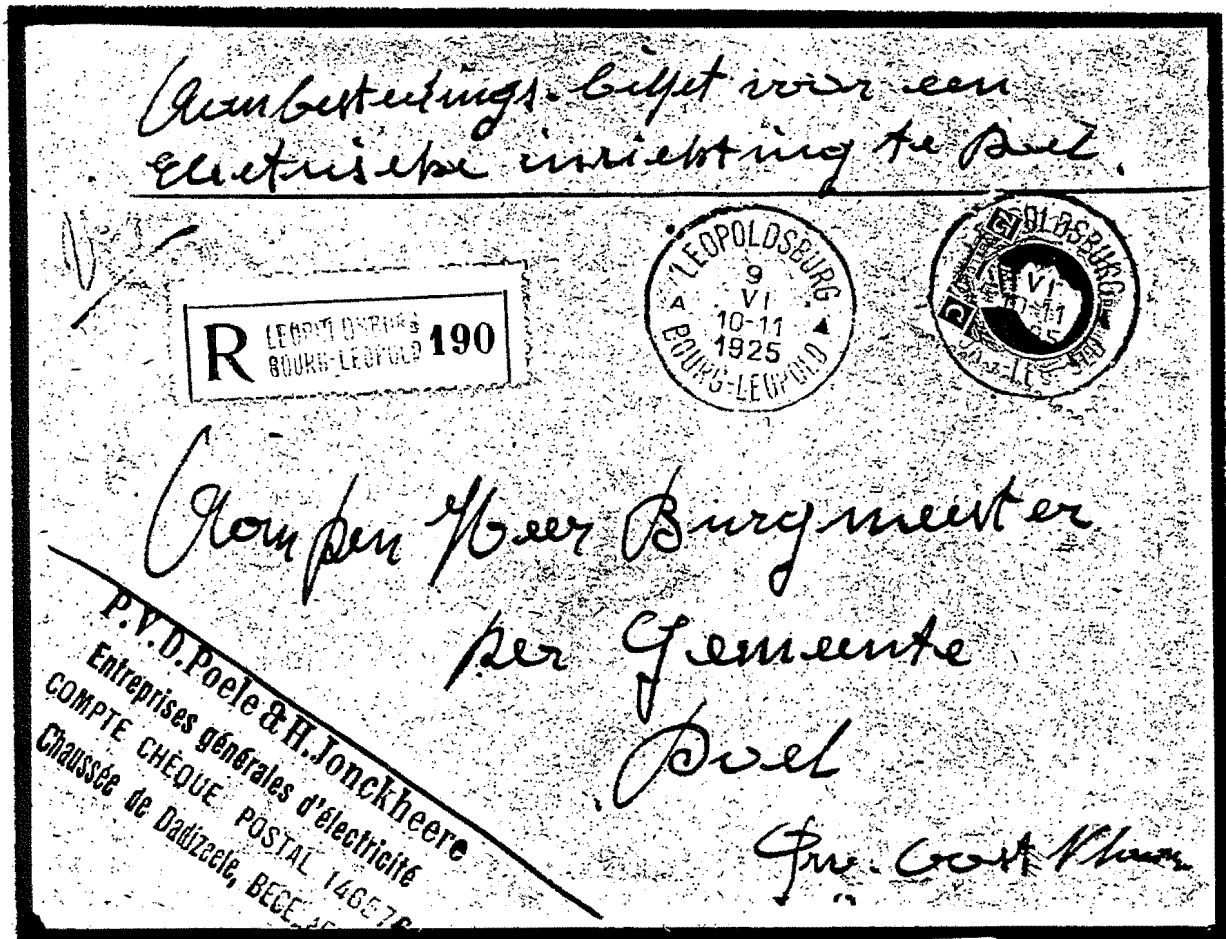 Aanbestedings-biljet voor een
Elektrische inrichting te Doel.
R LEOPOLDSBURG
BOURG-LEOPOLD 190
LEOPOLDSBURG
9
VI
10-11
1925
A
BOURG-LEOPOLD
OLDSBURG
VI
10-11
Aan den Heer Burgmeester
der Gemeente
Doel
Prov. Oost Vlaan
P.V.D.Poele & H.Jonckheere
Entreprises générales d'électricité
COMPTE CHÈQUE POSTAL
Chaussée de Dadizeele,